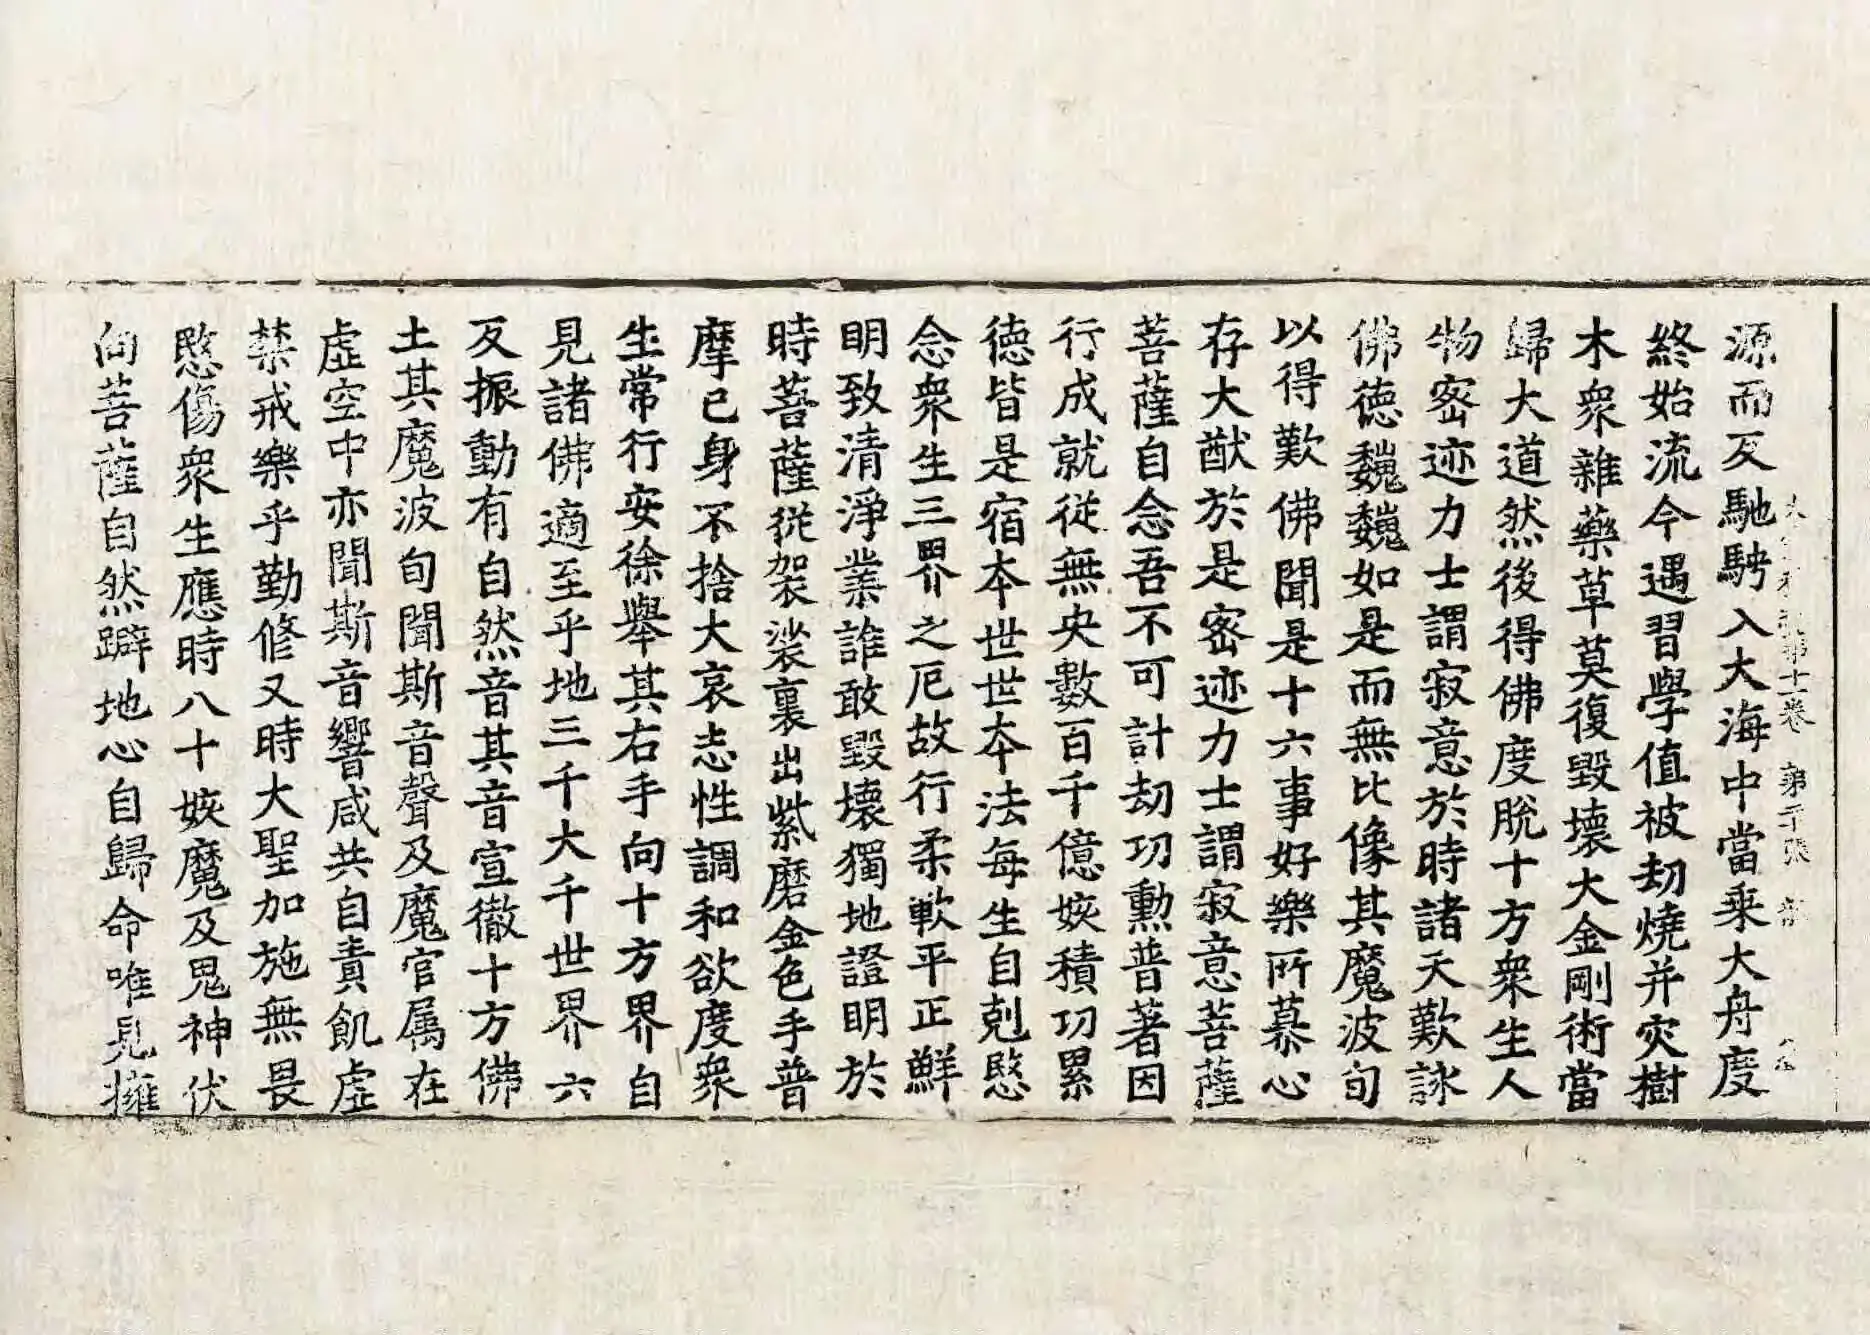 源而反馳騁入大海中當乗大舟度
終始流今遇習學值被劫燒并灾樹
木衆雜藥草莫復毀壞大金剛術當
歸大道然後得佛度脫十方衆生人
物密迹力士謂寂意於時諸天歎詠
佛德巍巍如是而無比像其魔波旬
以得歎佛聞是十六事好樂所慕心
存大猷於是密迹力士謂寂意菩薩
菩薩自念吾不可計劫功勲普著因
行成就従無央數百千億姟積功累
德皆是宿夲世世夲法每生自剋愍
念衆生三界之厄故行柔軟平正鮮
明致清淨業誰敢毀壞獨地證明於
時菩薩従袈裟裏出紫磨金色手普
摩已身不捨大哀志性調和欲度衆
生常行安徐舉其右手向十方界自
見諸佛適至乎地三千大千世界六
反振動有自然音其音宣徹十方佛
土其魔波旬聞斯音聲及魔官属在
虛空中亦聞斯音響咸共自責飢虛
禁戒樂乎勤修又時大聖加施無畏
愍傷衆生應時八十姟魔及鬼神伏
向菩薩自然躃地心自歸命唯見擁